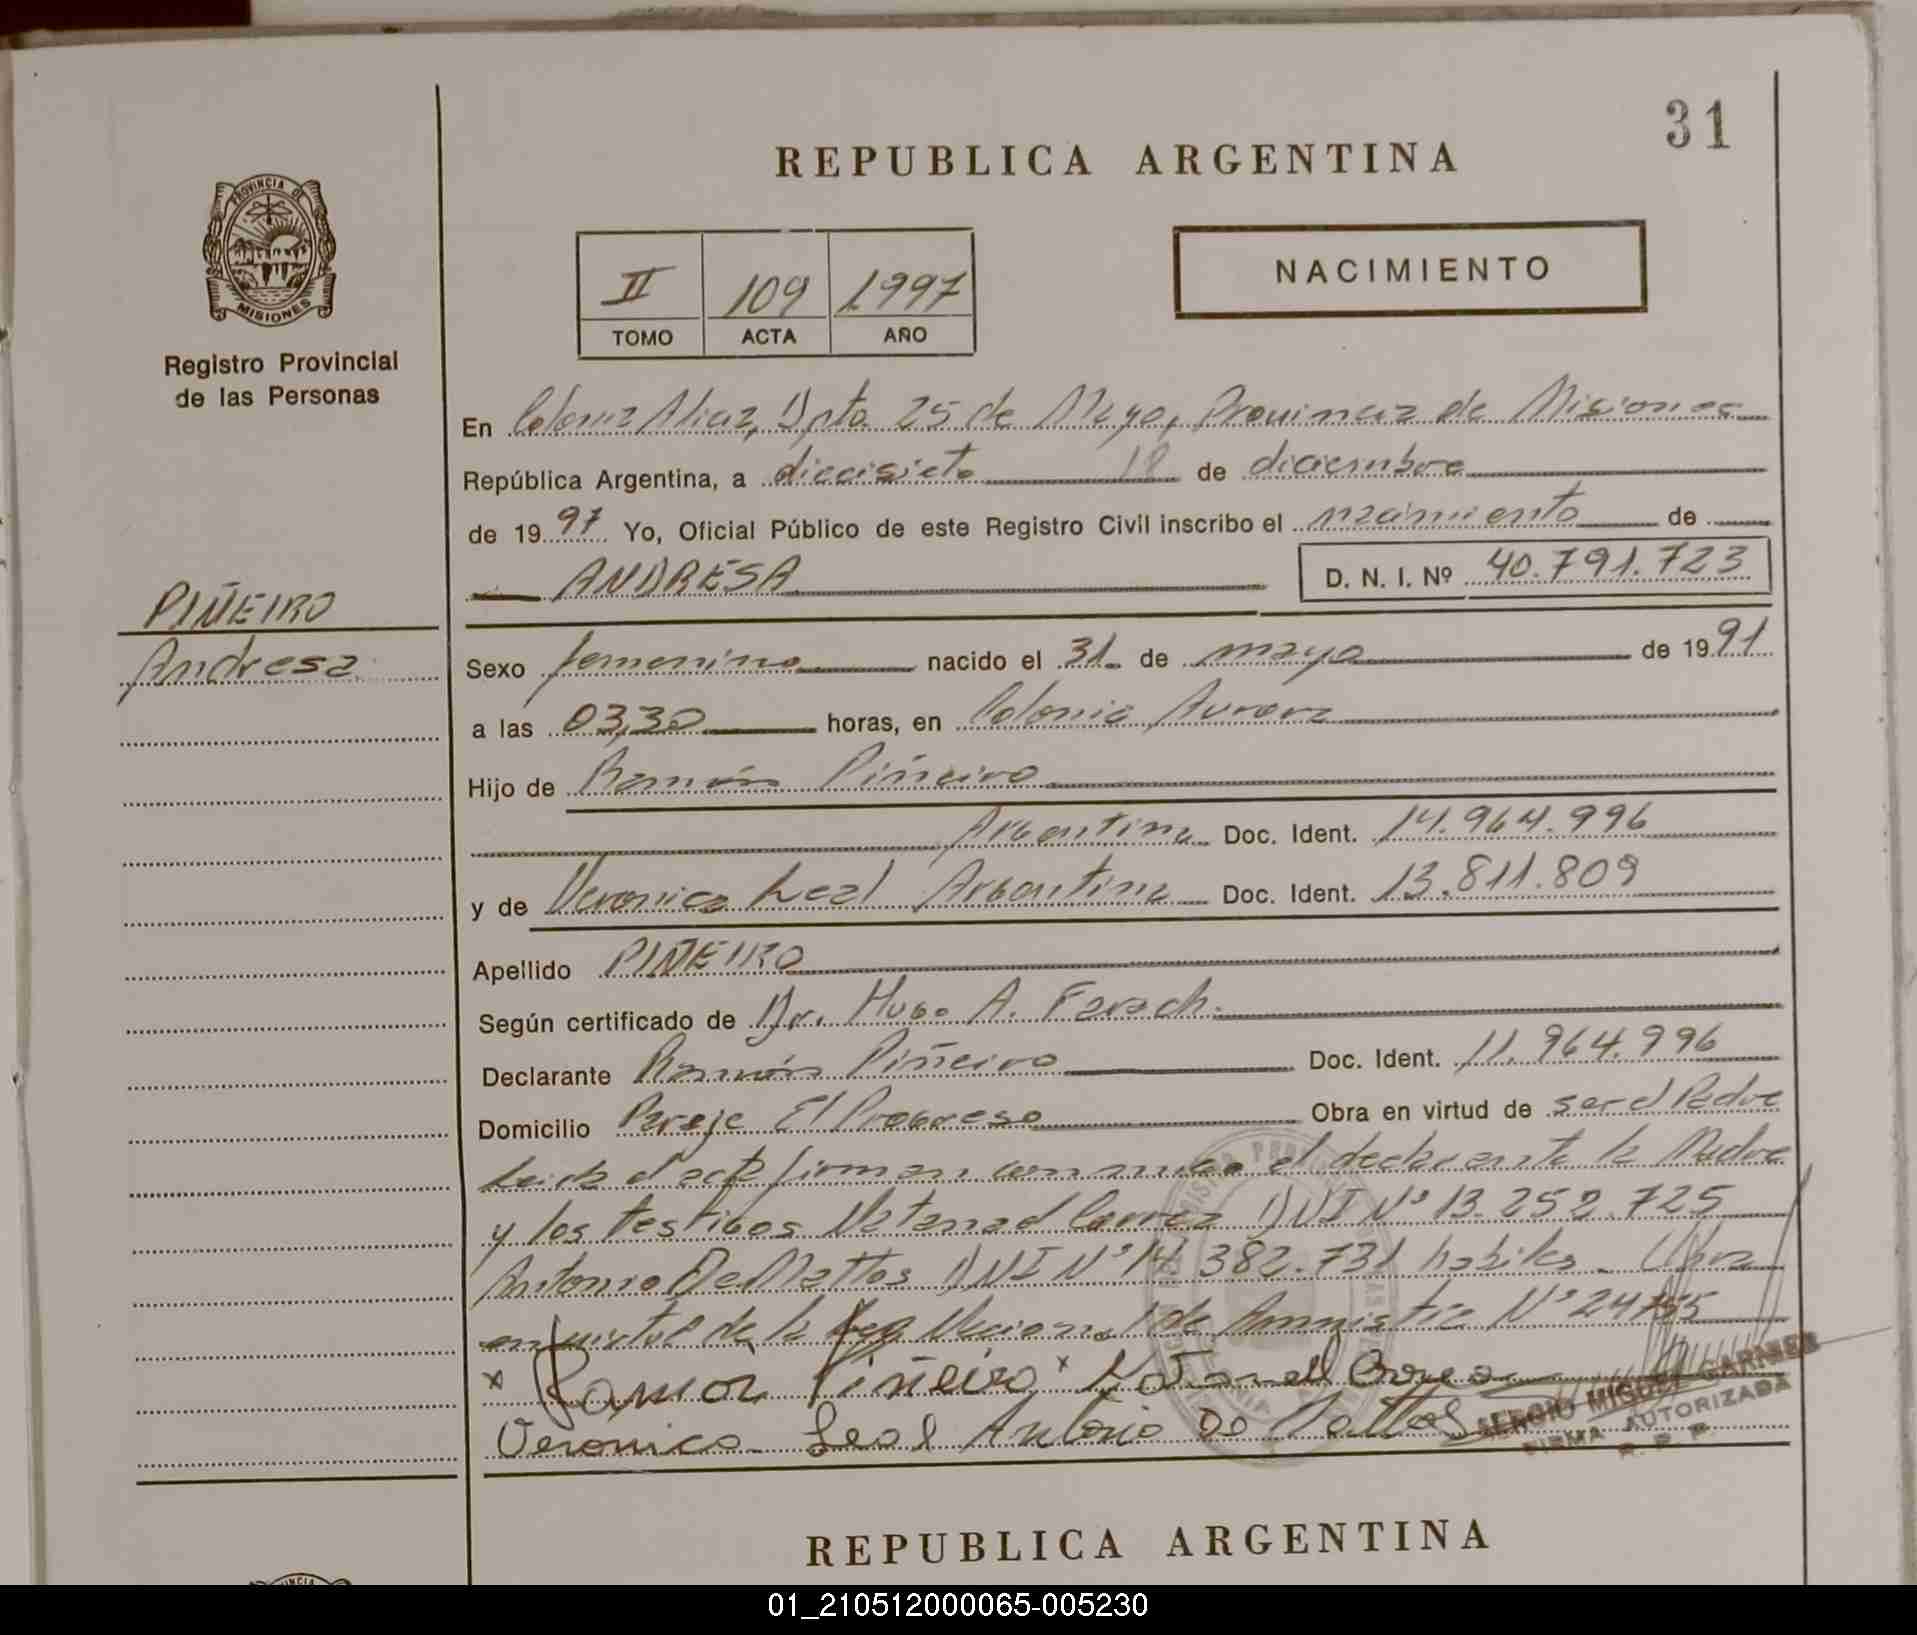 31
REPUBLICA ARGENTINA
PROVINCIA DE
MISIONES
Registro Provincial
de las Personas
II 109 1997
TOMO ACTA AÑO
NACIMIENTO
En Colonia Alicia, Dpto. 25 de Mayo, Provincia de Misiones
República Argentina, a diecisiete de diciembre
de 1997 Yo, Oficial Público de este Registro Civil inscribo el nacimiento de
ANDRESA D. N. I. Nº 40.791.723
PIÑEIRO
Andresa
Sexo femenino nacido el 31 de mayo de 1991
a las 03,30 horas, en Colonia Aurora
Hijo de Ramón Piñeiro
Argentina Doc. Ident. 14.964.996
y de Veronica Leal Argentina Doc. Ident. 13.811.809
Apellido PIÑEIRO
Según certificado de Dr. Hugo A. Farach.
Declarante Ramón Piñeiro Doc. Ident. 11.964.996
Domicilio Paraje El Progreso Obra en virtud de ser el Padre
Leida el acta firman conmigo el declarante la Madre
y los testigos Natanael Correa DNI Nº 13.252.725
Antonio De Mattos DNI Nº 14.382.731 habiles. Obra
en virtud de la Ley Nacional de Amnistia Nº 24755
x Ramon Piñeiro x Natanael Correa
Veronica Leal Antonio De Mattos
SERGIO MIGUEL GARNIER
FIRMA AUTORIZADA
R. P. P.
REPUBLICA ARGENTINA
01_210512000065-005230